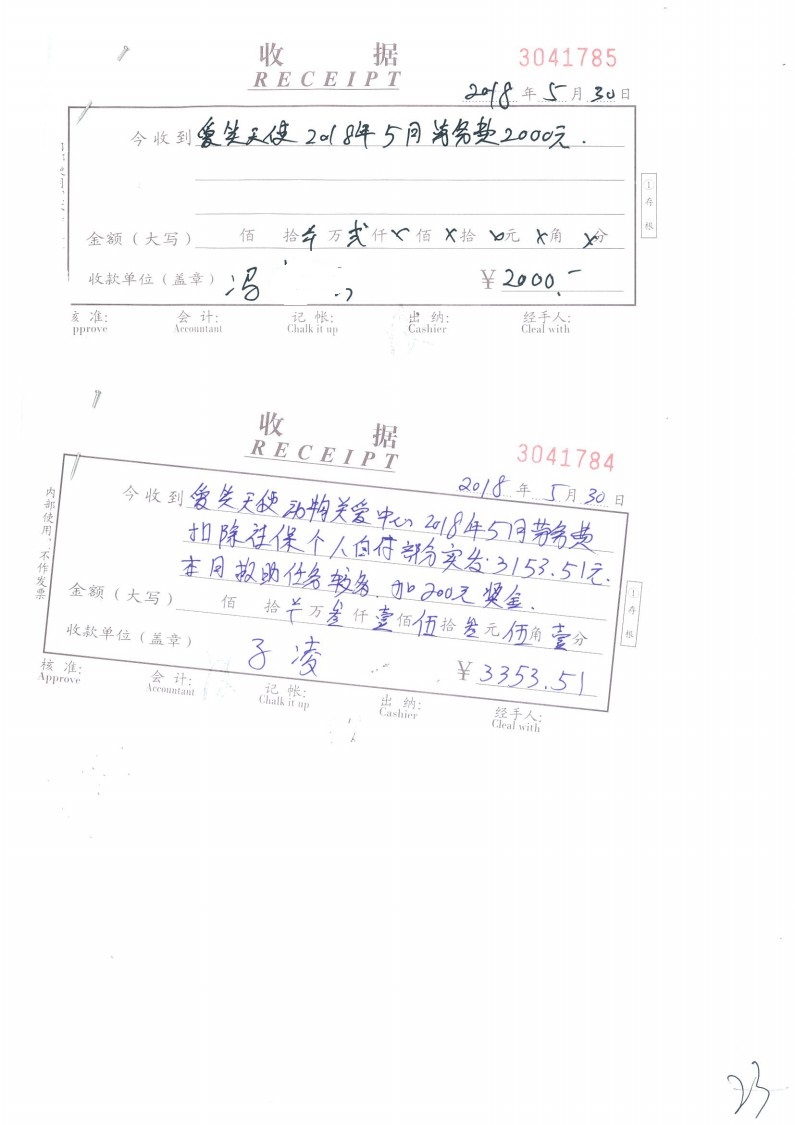 收 据
3041785
RECEIPT
2018 年 5 月 30 日
今收到 爱失天使 2018年5月劳务费2000元.
①存根
金额（大写） 佰 拾 万 贰 仟 x 佰 x 拾 元 x 角 x 分
收款单位（盖章） 冯 ¥ 2000.-
核 准: 会 计: 记 帐: 出 纳: 经手人:
pprove Accountant Chalk it up Cashier Cleal with
收 据
3041784
RECEIPT
2018 年 5 月 30 日
今收到 爱失天使动物关爱中心 2018年5月劳务费
扣除社保个人自付部分实发:3153.51元.
本月救助任务较多, 加200元奖金.
内部使用，不作发票
①存根
金额（大写） 佰 拾 万 叁 仟 壹 佰 伍 拾 叁 元 伍 角 壹 分
收款单位（盖章） 子凌 ¥ 3353.51
核 准: 会 计: 记 帐: 出 纳: 经手人:
Approve Accountant Chalk it up Cashier Cleal with
23